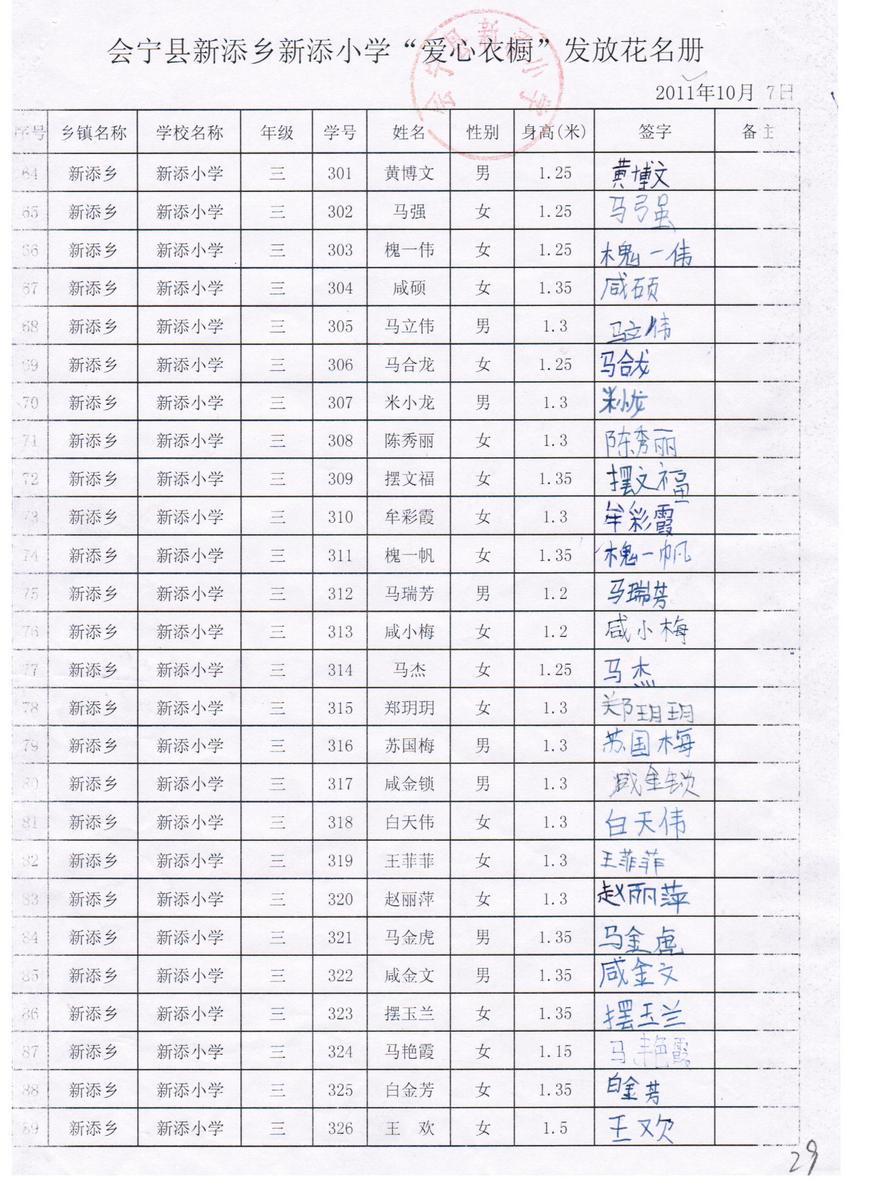 会宁县新添乡新添小学“爱心衣橱”发放花名册
2011年10月 7日
序号 乡镇名称 学校名称 年级 学号 姓名 性别 身高(米) 签字 备注
64 新添乡 新添小学 三 301 黄博文 男 1.25 黄博文
65 新添乡 新添小学 三 302 马强 女 1.25 马强
66 新添乡 新添小学 三 303 槐一伟 女 1.25 槐一伟
67 新添乡 新添小学 三 304 咸硕 女 1.35 咸硕
68 新添乡 新添小学 三 305 马立伟 男 1.3 马立伟
69 新添乡 新添小学 三 306 马合龙 女 1.25 马合龙
70 新添乡 新添小学 三 307 米小龙 男 1.3 米小龙
71 新添乡 新添小学 三 308 陈秀丽 女 1.3 陈秀丽
72 新添乡 新添小学 三 309 摆文福 女 1.35 摆文福
73 新添乡 新添小学 三 310 牟彩霞 女 1.3 牟彩霞
74 新添乡 新添小学 三 311 槐一帆 女 1.35 槐一帆
75 新添乡 新添小学 三 312 马瑞芳 男 1.2 马瑞芳
76 新添乡 新添小学 三 313 咸小梅 女 1.2 咸小梅
77 新添乡 新添小学 三 314 马杰 女 1.25 马杰
78 新添乡 新添小学 三 315 郑玥玥 女 1.3 郑玥玥
79 新添乡 新添小学 三 316 苏国梅 男 1.3 苏国梅
80 新添乡 新添小学 三 317 咸金锁 男 1.3 咸金锁
81 新添乡 新添小学 三 318 白天伟 女 1.3 白天伟
82 新添乡 新添小学 三 319 王菲菲 女 1.3 王菲菲
83 新添乡 新添小学 三 320 赵丽萍 女 1.3 赵丽萍
84 新添乡 新添小学 三 321 马金虎 男 1.35 马金虎
85 新添乡 新添小学 三 322 咸金文 男 1.35 咸金文
86 新添乡 新添小学 三 323 摆玉兰 女 1.35 摆玉兰
87 新添乡 新添小学 三 324 马艳霞 女 1.15 马艳霞
88 新添乡 新添小学 三 325 白金芳 女 1.35 白金芳
89 新添乡 新添小学 三 326 王 欢 女 1.5 王欢
29